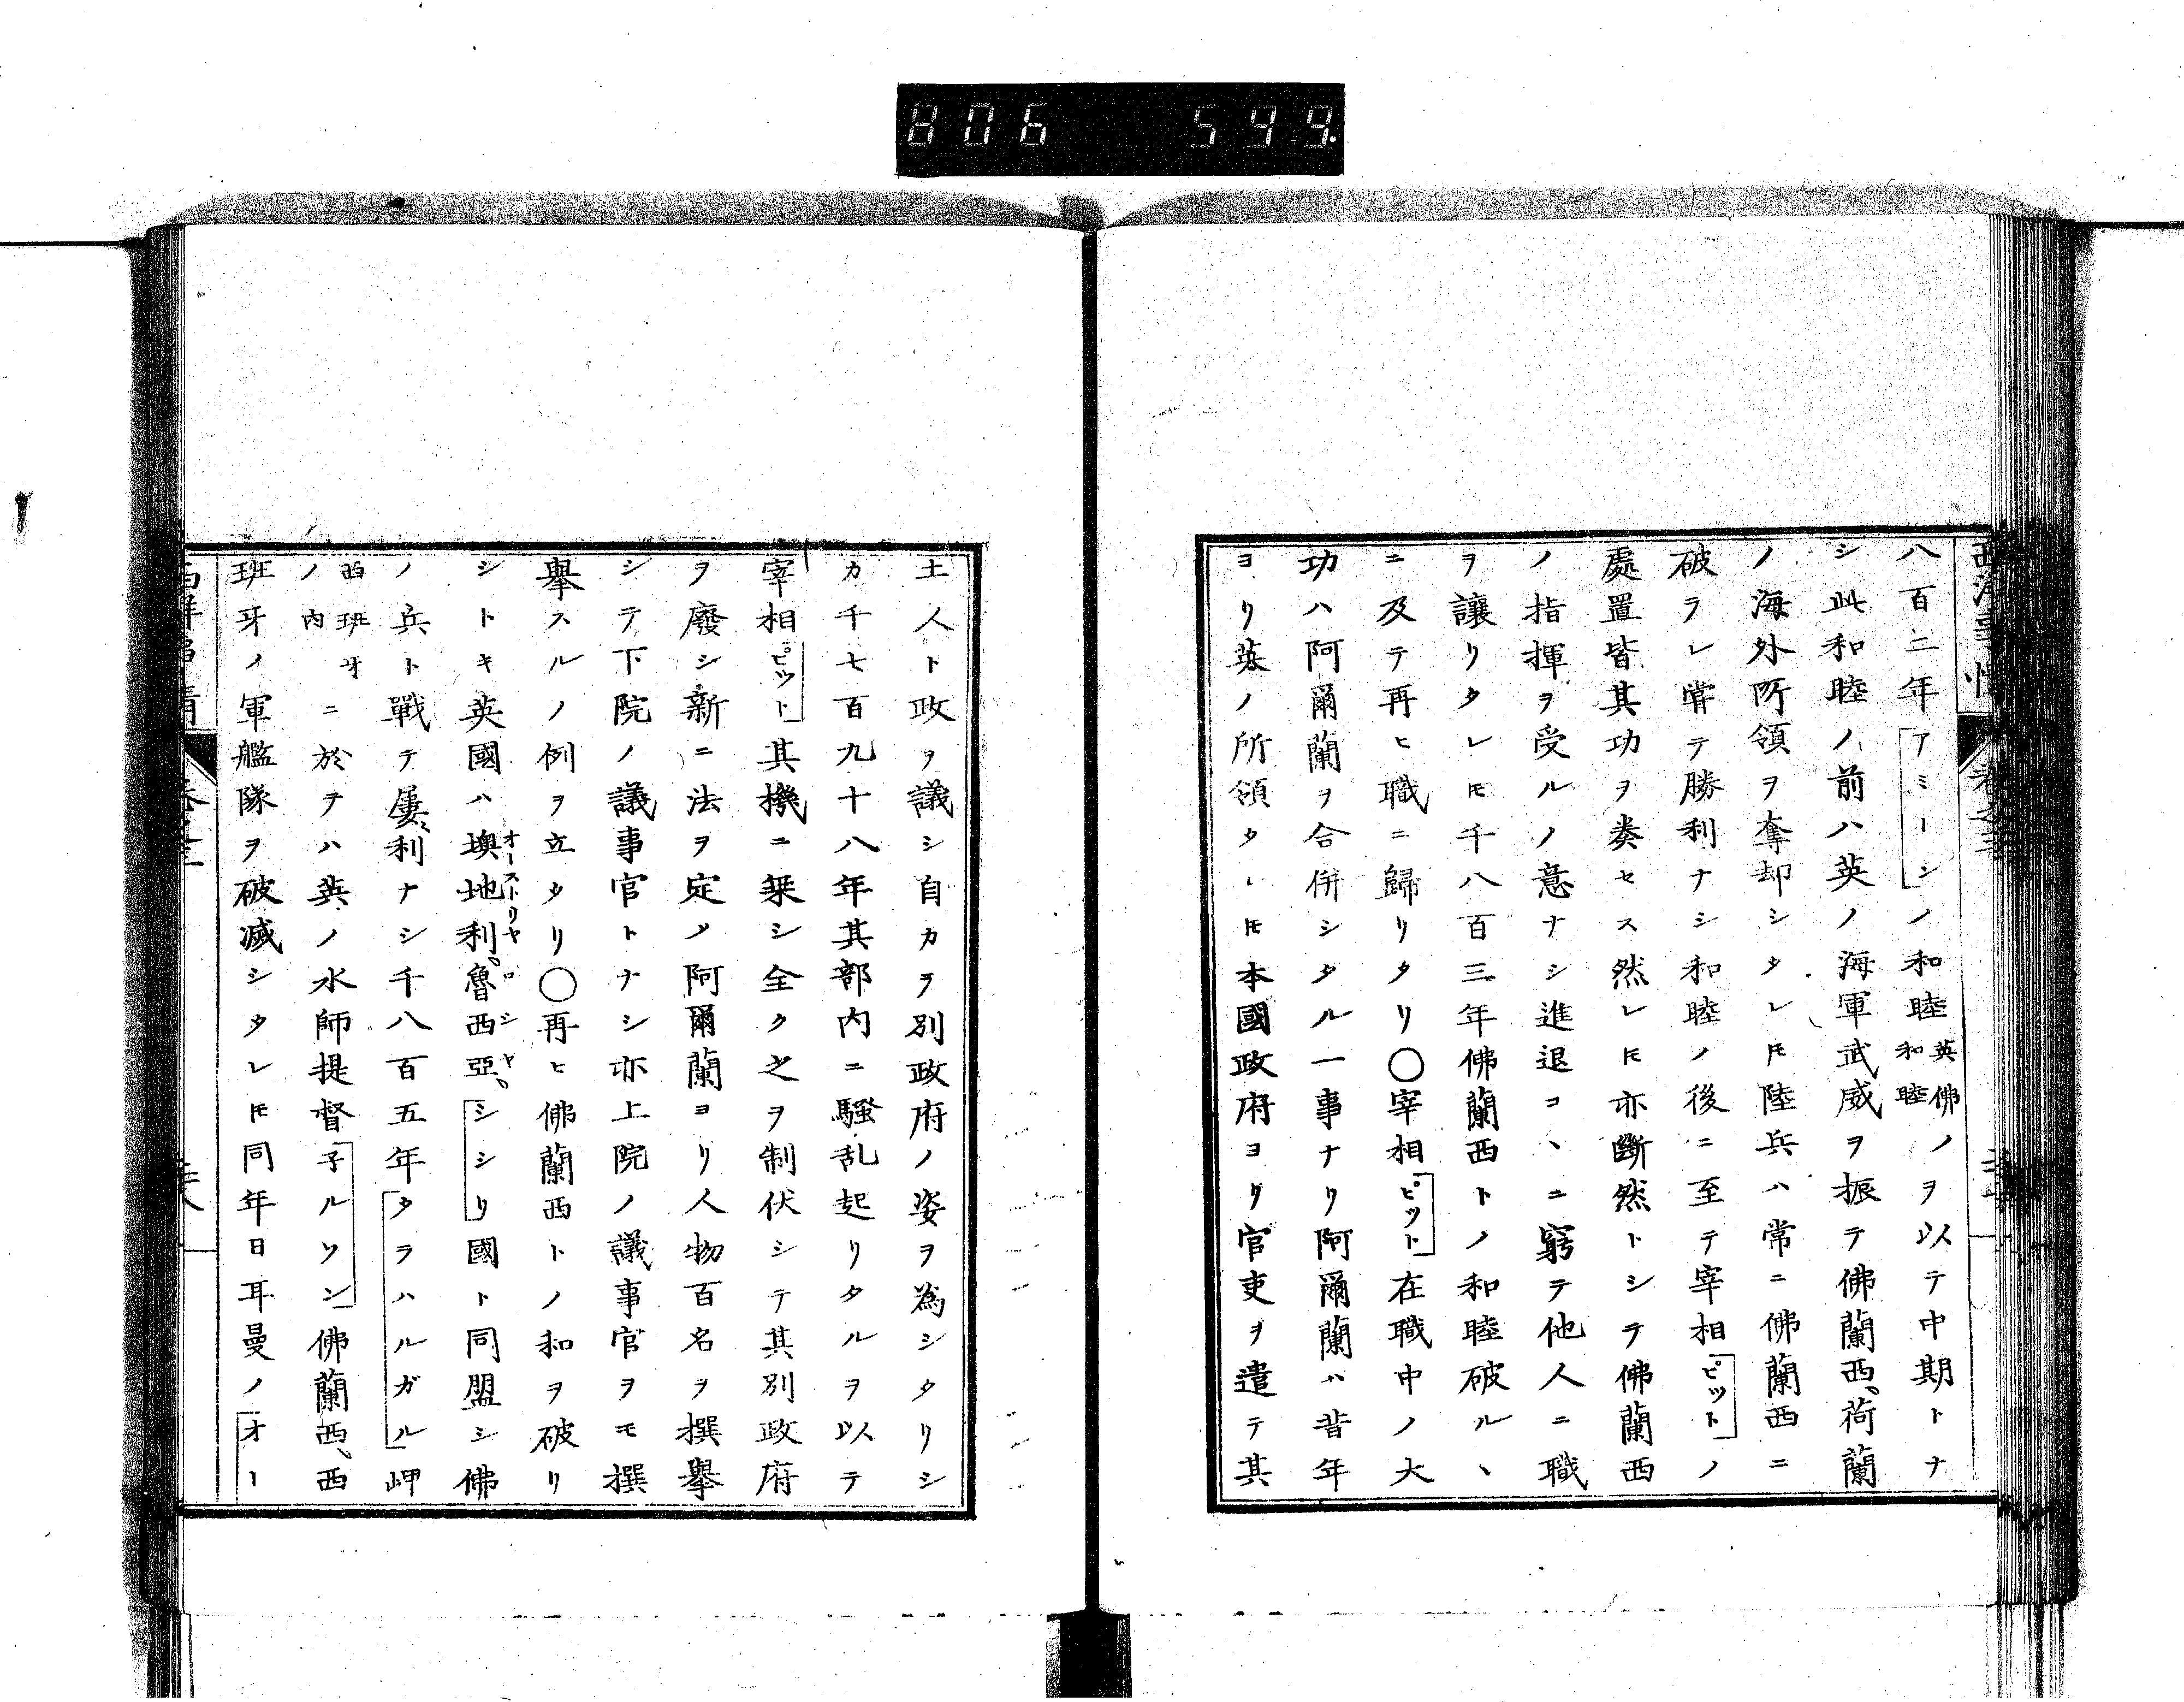 806 599
八百二年「アミーン」ノ和睦英佛ノ和睦ヲ以テ中期トナ
シ此和睦ノ前ハ英ノ海軍武威ヲ振テ佛蘭西、荷蘭
ノ海外所領ヲ奪却シタレ𪜈陸兵ハ常ニ佛蘭西ニ
破ラレ甞テ勝利ナシ和睦ノ後ニ至テ宰相「ピット」ノ
處置皆其功ヲ奏セス然レ𪜈亦斷然トシテ佛蘭西
ノ指揮ヲ受ルノ意ナシ進退コヽニ窮テ他人ニ職
ヲ讓リタレ𪜈千八百三年佛蘭西トノ和睦破ルヽ
ニ及テ再ヒ職ニ歸リタリ〇宰相「ピット」在職中ノ大
功ハ阿爾蘭ヲ合併シタル一事ナリ阿爾蘭ハ昔年
ヨリ英ノ所領タレ𪜈本國政府ヨリ官吏ヲ遣テ其
土人ト政ヲ議シ自カラ別政府ノ姿ヲ為シタリシ
カ千七百九十八年其部内ニ騷乱起リタルヲ以テ
宰相「ピット」其機ニ乘シ全ク之ヲ制伏シテ其別政府
ヲ廢シ新ニ法ヲ定メ阿爾蘭ヨリ人物百名ヲ撰擧
シテ下院ノ議事官トナシ亦上院ノ議事官ヲモ撰
擧スルノ例ヲ立タリ〇再ヒ佛蘭西トノ和ヲ破リ
シトキ英國ハ墺地利、オーストリヤ魯西亞、ロシヤ「シシリ」國ト同盟シ佛
ノ兵ト戰テ屢〻利ナシ千八百五年「タラハルガル」岬
西班牙ノ内ニ於テハ英ノ水師提督「子ルソン」佛蘭西、西
班牙ノ軍艦隊ヲ破滅シタレ𪜈同年日耳曼ノ「オー